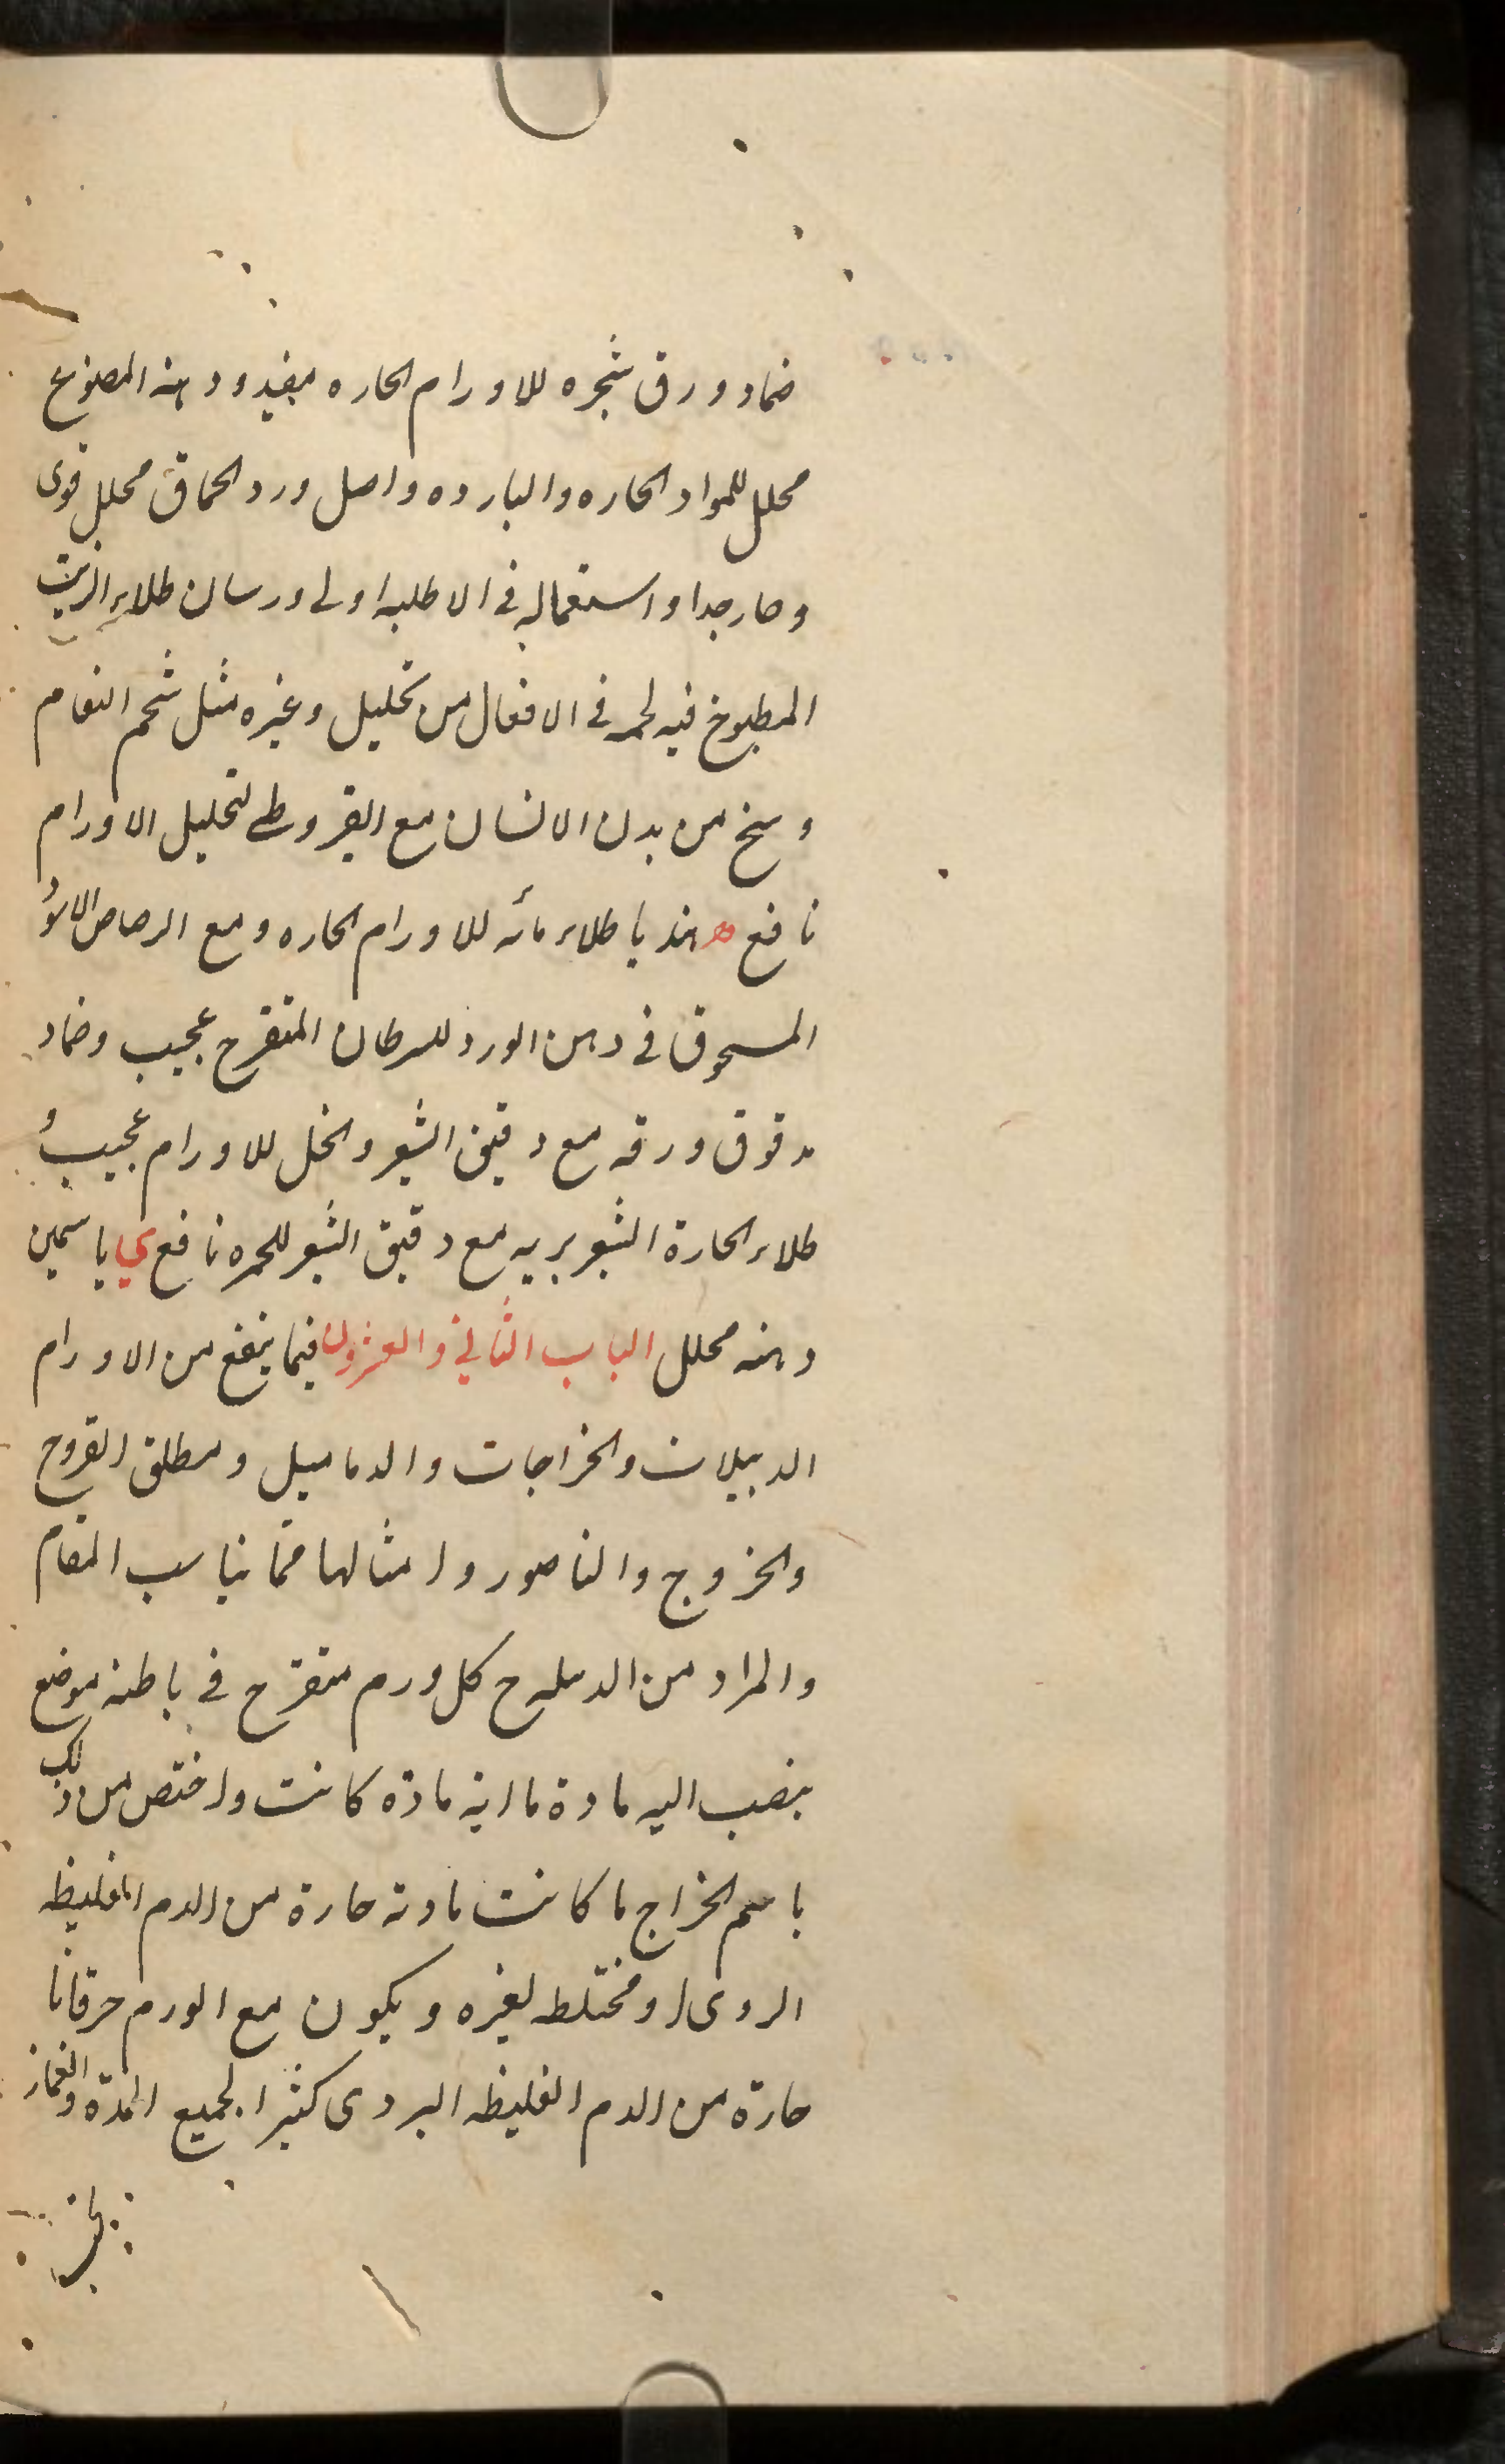 ضماد ورق شجره للاورام الحاره مفيد ودهنه المصنوع
محلل للمواد الحاره والبارده واصل ورد الحماق محلل قوى
وحار جدا واستعماله فى الاطليه اولى ورسان طلاء الزيت
المطبوخ فيه لحمه فى الافعال من تحليل وغيره مثل شحم النعام
وسخ من بدن الانسان مع القيروطى لتحليل الاورام
نافع ه هندبا طلاء مائه للاورام الحاره ومع الرصاص الاسود
المسحوق فى دهن الورد للسرطان المتقرح عجيب وضماد
مدقوق ورقه مع دقيق الشعير والخل للاورام عجيب و
طلاء الحارة الشعو بريه مع دقيق الشعير للحمره نافع ى ياسمين
دهنه محلل الباب الثانى والعشرون فيما ينفع من الاورام
الدبيلات والخراجات والدماميل ومطلق القروح
والخروج والناصور وامثالها مما يناسب المقام
والمراد من الدبيله ح كل ورم متقرح فى باطنه موضع
ينصب اليه مادة ما اية مادة كانت واختص من ذلك
باسم الخراج ما كانت مادته حارة من الدم الغليظه
الردى او مختلط لغيره ويكون مع الورم حرقانا
حارة من الدم الغليظه الردى كثيرا لجميع المدة والغماز